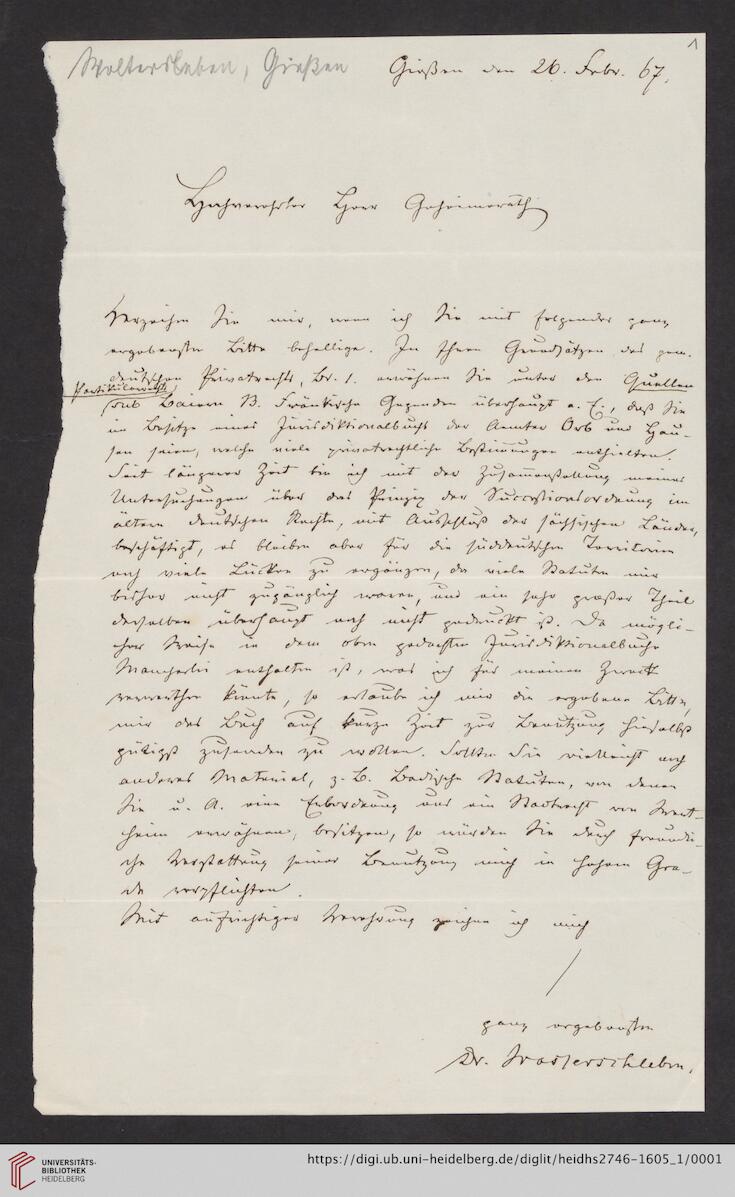 1
Woltersleben, Gießen
Gießen den 26. Febr. 67.
Hochverehrter Herr Geheimerath
Verzeihen Sie mir, wenn ich Sie mit folgender ganz
ergebensten Bitte behellige. In Ihren Grundsätzen des gem.
deutschen Privatrechts, Bd. 1. erwähnen Sie unter den Quellen
Partikularrechte
sub Baiern B. Fränkische Gegenden überhaupt a. E., daß Sie
im Besitze eines Jurisdiktionalbuchs der Aemter Orb und Hau-
sen seien, welche viele privatrechtliche Bestimmungen enthielten.
Seit längerer Zeit bin ich mit der Zusammenstellung meiner
Untersuchungen über das Prinzip der Successionsordnung im
ältern deutschen Rechte, mit Ausschluß der sächsischen Länder,
beschäftigt, es bleiben aber für die süddeutschen Territorien
noch viele Lücken zu ergänzen, da viele Statuten mir
bisher nicht zugänglich waren, und ein sehr großer Theil
derselben überhaupt noch nicht gedruckt ist. Da mögli-
cher Weise in dem oben gedachten Jurisdiktionalbuche
Mancherlei enthalten ist, was ich für meinen Zweck
verwerthen könnte, so erlaube ich mir die ergebene Bitte,
mir das Buch auf kurze Zeit zur Benutzung hieselbst
gütigst zusenden zu wollen. Sollten Sie vielleicht noch
anderes Material, z. B. Badische Statuten, von denen
Sie u. A. eine Erbordnung und ein Stadtrecht von Wert-
heim erwähnen, besitzen, so würden Sie durch freundli-
che Verstattung seiner Benutzung mich in hohem Gra-
de verpflichten.
Mit aufrichtiger Verehrung zeichne ich mich
ganz ergebensten
Dr. Wasserschleben.
UNIVERSITÄTS-
BIBLIOTHEK
HEIDELBERG
https://digi.ub.uni-heidelberg.de/diglit/heidhs2746-1605_1/0001